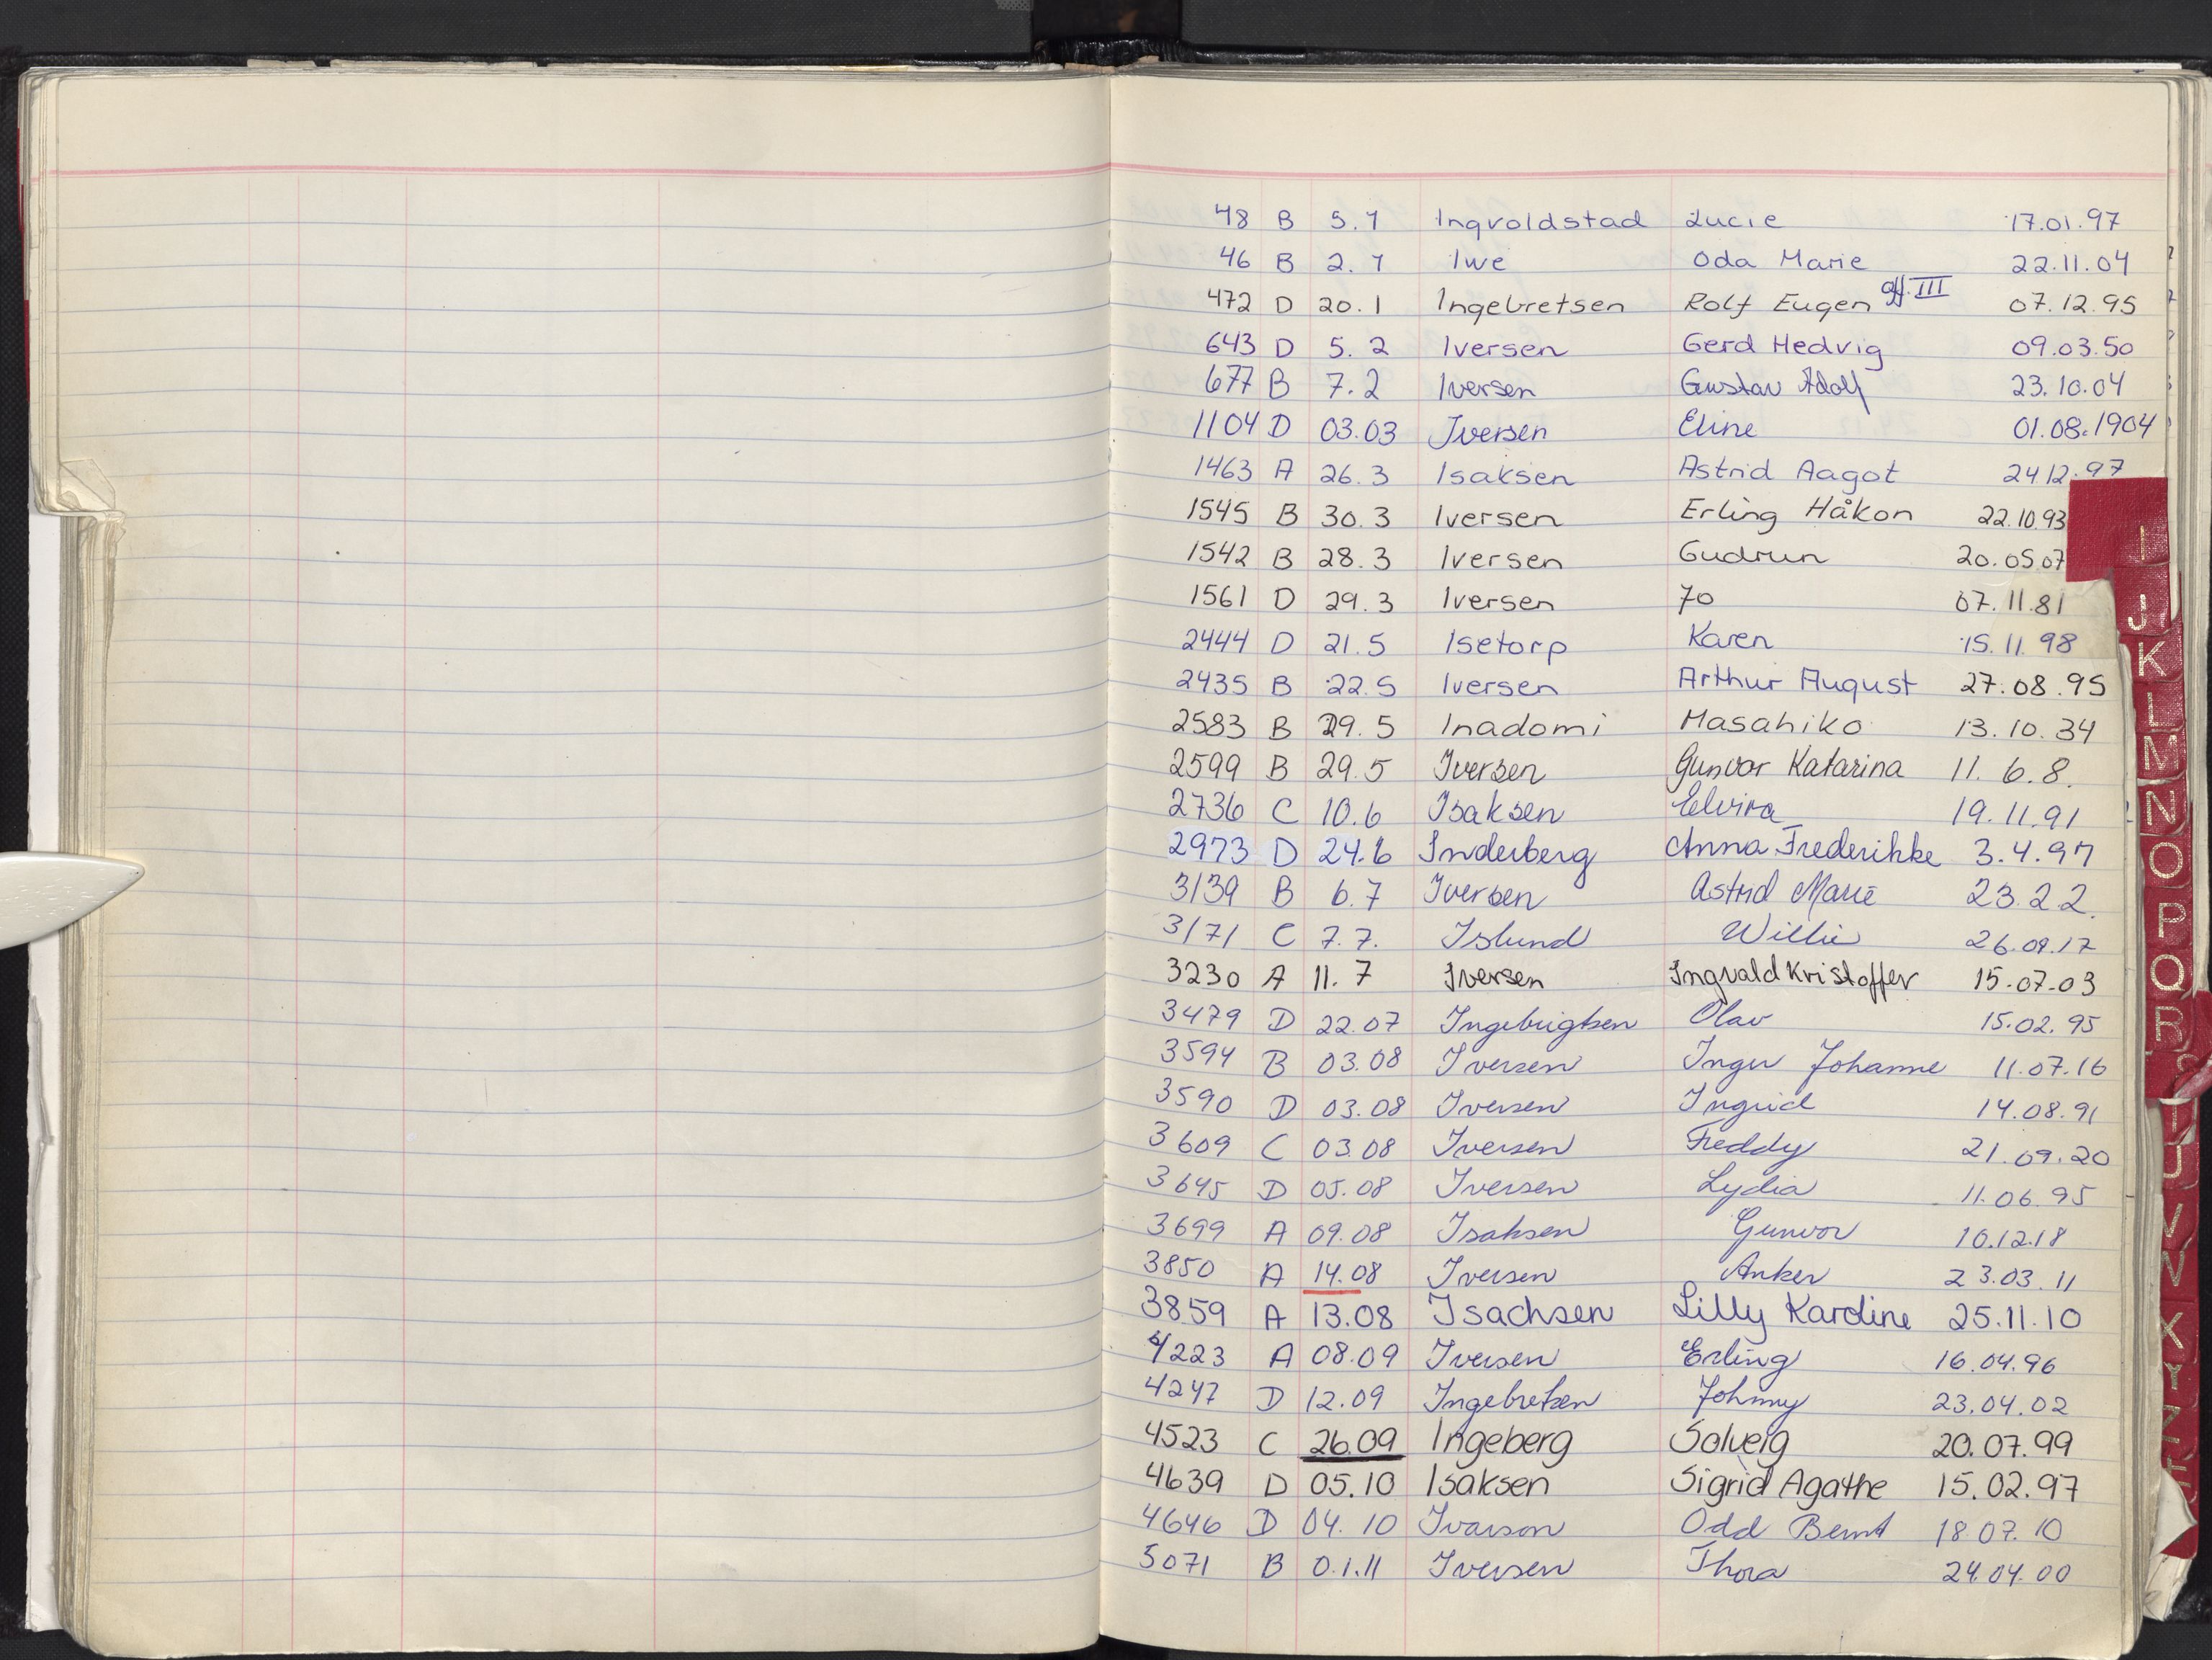 48 B 5.1 Ingvoldstad Lucie 17.01.97
46 B 2.1 Iwe Oda Marie 22.11.04
472 D 20.1 Ingebretsen Rolf Eugen off. III 07.12.95
643 D 5.2 Iversen Gerd Hedvig 09.03.50
677 B 7.2 Iversen Gustav Adolf 23.10.04
1104 D 03.03 Iversen Eline 01.08.1904
1463 A 26.3 Isaksen Astrid Aagot 24 12.97
1545 B 30.3 Iversen Erling Håkon 22.10.93
1542 B 28.3 Iversen Gudrun 20.05.07
1561 D 29.3 Iversen Jo 07.11.81
2444 D 21.5 Isetorp Karen 15.11.98
2435 B 22.5 Iversen Arthur August 27.08.95
2583 B 29.5 Inadomi Masahiko 13.10.34
2599 B 29.5 Iversen Gunvor Katarina 11.6.8.
2736 C 10.6 Isaksen Elvira 19.11.91
2973 D 24.6 Inderberg Anna Frederikke 3.4.97
3139 B 6.7 Iversen Astrid Marie 23.2 2.
3171 C 7.7. Islund Willie 26.09.17
3230 A 11.7 Iversen Ingvald Kristoffer 15.07.03
3479 D 22.07 Ingebrigtsen Olav 15.02.95
3594 B 03.08 Iversen Inger Johanne 11.07.16
3590 D 03.08 Iversen Ingrid 14.08.91
3609 C 03.08 Iversen Freddy 21.09.20
3645 D 05.08 Iversen Lydia 11.06.95
3699 A 09.08 Isaksen Gunvor 10.12.18
3850 A 14.08 Iversen Anker 23.03.11
3859 A 13.08 Isachsen Lilly Karoline 25.11.10
4223 A 08.09 Iversen Erling 16.04.96
4247 D 12.09 Ingebretsen Johnny 23.04.02
4523 C 26.09 Ingeberg Solveig 20.07.99
4639 D 05.10 Isaksen Sigrid Agathe 15.02.97
4646 D 04.10 Ivarson Odd Bernt 18.07.10
5071 B 0.1.11 Iversen Thora 24.04.00
I
J
K
L
M
N
O
P
Q
R
S
T
U
V
W
X
Y
Z